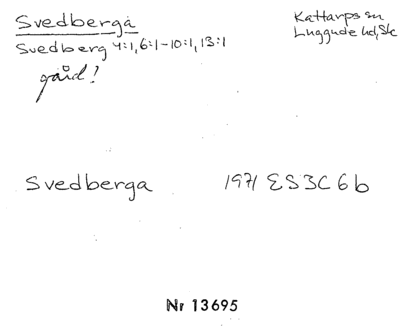 Svedberga
Kattarps sn
Luggude hd, Sk
Svedberg 4:1, 6:1-10:1, 13:1
gård!
Svedberga 1971 ES3C6b
Nr 13695